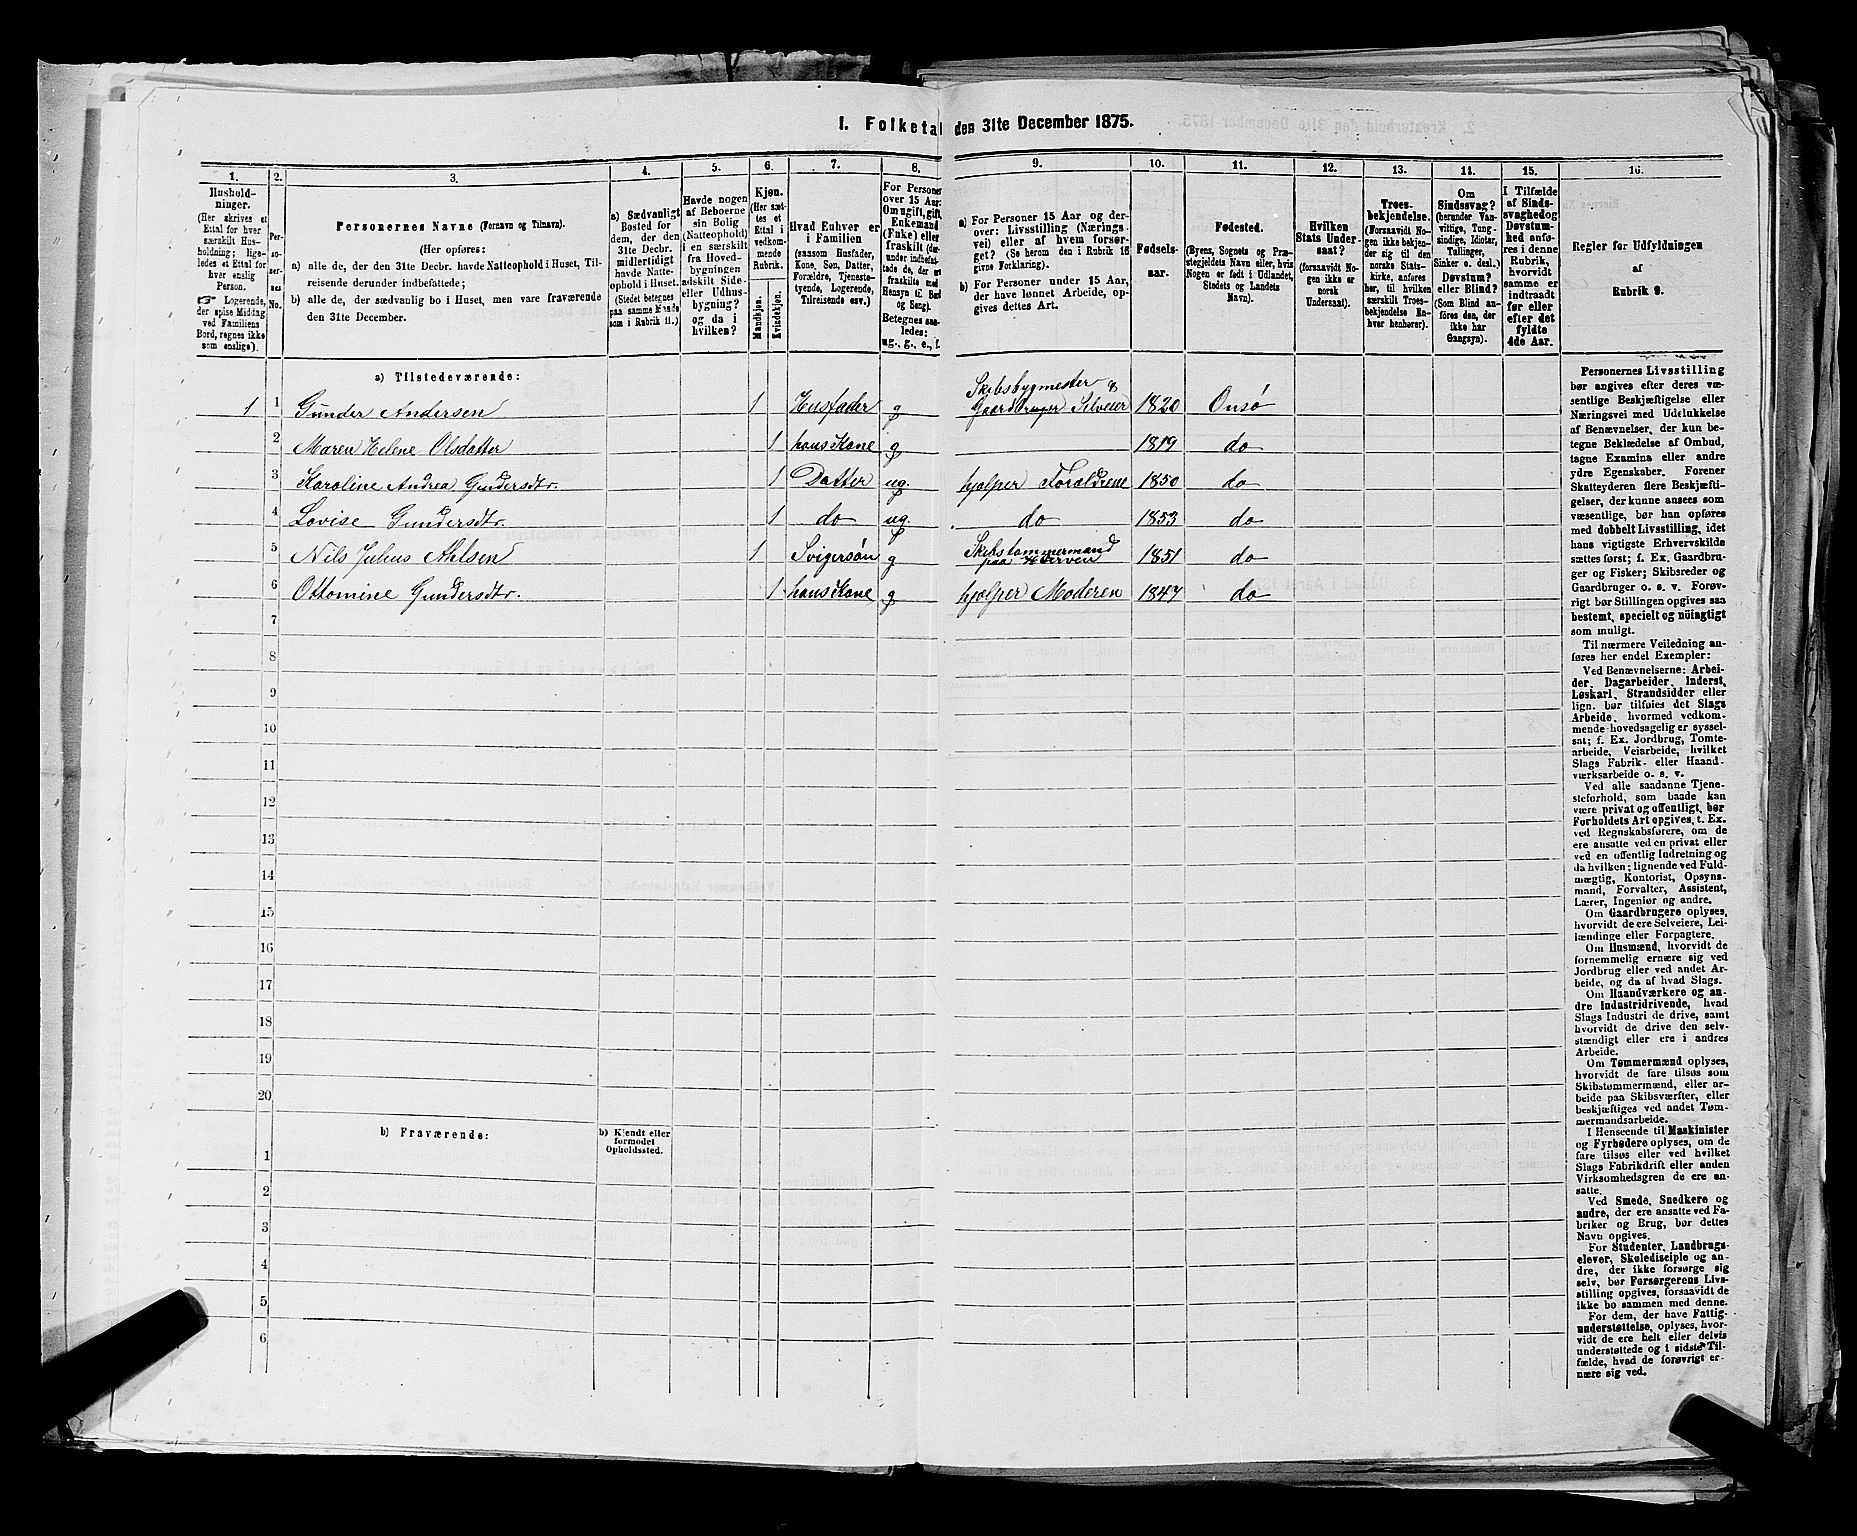 1. Folketal den 31te December 1875.
1. 2. 3. 4. 5. 6. 7. 8. 9. 10. 11. 12. 13. 14. 15. 16.
Husholdninger.
(Her skrives et
Ettal for hver
særskilt Hus-
holdning; lige-
ledes et Ettal for
hver enslig
Person.
☞ Logerende,
der spise Middag
ved Familiens
Bord, regnes ikke
som enslige).
Personernes No.
Personernes Navne (Fornavn og Tilnavn).
(Her opføres:
a) alle de, der den 31te Decbr. havde Natteophold i Huset, Til-
reisende derunder indbefattede;
b) alle de, der sædvanlig bo i Huset, men vare fraværende
den 31te December.
a) Sædvanligt
Bosted for
dem, der den
31te Decbr.
midlertidigt
havde Natte-
ophold i Huset.
(Stedet betegnes
paa samme Maade
som i Rubrik 11.)
Havde nogen
af Beboerne
sin Bolig
(Natteophold)
i en særskilt
fra Hoved-
bygningen
adskilt Side-
eller Udhus-
bygning?
og da i
hvilken?
Kjøn.
(Her sæt-
tes et
Ettal i
vedkom-
mende
Rubrik.
Mandkjøn.
Kvindekjøn.
Hvad Enhver er
i Familien
(saasom Husfader,
Kone, Søn, Datter,
Forældre, Tjeneste-
tyende, Logerende,
Tilreisende osv.)
For Personer
over 15 Aar:
Om ugift, gift,
Enkemand
(Enke) eller
fraskilt (der-
under indbefat-
tede de, der ere
fraskilte med
Hensyn til Bord
og Seng).
Betegnes saa-
ledes:
ug., g., e., f.
a) For Personer 15 Aar og der-
over: Livsstilling (Nærings-
vei) eller af hvem forsør-
get? (Se herom den i Rubrik 16
givne Forklaring).
b) For Personer under 15 Aar,
der have lønnet Arbeide, op-
gives dettes Art.
Fødsels-
aar.
Fødested.
(Byens, Sognets og Præ-
stegjeldets Navn eller, hvis
Nogen er født i Udlandet,
Stedets og Landets
Navn).
Hvilken
Stats Under-
saat?
(forsaavidt No-
gen ikke er
norsk
Undersaat).
Troes-
bekjendelse.
(Forsaavidt No-
gen ikke bekjen-
der sig til den
norske Stats-
kirke, anføres
her, til hvilken
særskilt Troes-
bekjendelse En-
hver henhører).
Om
Sindssvag?
(herunder Van-
vittige, Tung-
sindige, Idioter,
Tullinger,
Sinker o. desl.)
Døvstum?
eller Blind?
(Som Blind an-
føres den, der
ikke har
Gangsyn).
I Tilfælde
af Sinds-
svaghed og
Døvstum-
hed anfø-
res i denne
Rubrik,
hvorvidt
samme er
indtraadt
før eller
efter det
fyldte
4de Aar.
Regler for Udfyldningen
af
Rubrik 9.
a) Tilstedeværende:
1 1 Gunder Andersen 1 Husfader g Skibsbygmester & Gaardbruger Selveier 1820 Onsø
2 Maren Helene Olsdatter 1 hans Kone g 1819 do
3 Karoline Andrea Gundersdtr. 1 Datter ug. hjælper Forældrene 1850 do
4 Lovise Gundersdtr. 1 do ug. do 1853 do
5 Nils Julius Ahlsen 1 Svigersøn g Skibstømmermand paa Værven 1851 do
6 Ottomine Gundersdtr. 1 hans Kone g hjælper Moderen 1847 do
7
8
9
10
11
12
13
14
15
16
17
18
19
20
b) Fraværende:
b) Kjendt eller
formodet
Opholdssted.
1
2
3
4
5
6
Personernes Livsstilling
bør angives efter deres væ-
sentlige Beskjæftigelse eller
Næringsvei med Udelukkelse
af Benævnelser, der kun be-
tegne Beklædelse af Ombud,
tagne Examina eller andre
ydre Egenskaber. Forener
Skatteyderen flere Beskjæfti-
gelser, der kunne ansees som
væsentlige, bør han opføres
med dobbelt Livsstilling, idet
hans vigtigste Erhvervskilde
sættes først; f. Ex. Gaardbru-
ger og Fisker; Skibsreder og
Gaardbruger o. s. v. Forøv-
rigt bør Stillingen opgives saa
bestemt, specielt og nöiagtigt
som muligt.
Til nærmere Veiledning an-
føres her endel Exempler:
Ved Benævnelserne: Arbei-
der, Dagarbeider, Inderst,
Løskarl, Strandsidder eller
lign. bør tilføies det Slags
Arbeide, hvormed vedkom-
mende hovedsagelig er syssel-
sat; f. Ex. Jordbrug, Tomte-
arbeide, Veiarbeide, hvilket
Slags Fabrik- eller Haand-
værksarbeide o. s. v.
Ved alle saadanne Tjene-
steforhold, som baade kan
være privat og offentligt, bør
Forholdets Art opgives, t. Ex.
ved Regnskabsførere, om de
ere ansatte ved en privat eller
ved en offentlig Indretning og
da hvilken; lignende ved Fuld-
mægtig, Kontorist, Opsyns-
mand, Forvalter, Assistent,
Lærer, Ingeniør og andre.
Om Gaardbrugere oplyses,
hvorvidt de ere Selveiere, Lei-
lændinge eller Forpagtere.
Om Husmænd, hvorvidt de
fornemmelig ernære sig ved
Jordbrug eller ved andet Ar-
beide, og da af hvad Slags.
Om Haandværkere og an-
dre Industridrivende, hvad
Slags Industri de drive, samt
hvorvidt de drive den selv-
stændigt eller ere i andres
Arbeide.
Om Tømmermænd oplyses,
hvorvidt de fare tilsøs som
Skibstømmermænd, eller ar-
beide paa Skibsværfter, eller
beskjæftiges ved andet Tøm-
mermandsarbeide.
I Henseende til Maskinister
og Fyrbødere oplyses, om de
fare tilsøs eller ved hvilket
Slags Fabrikdrift eller anden
Virksomhedsgren de ere an-
satte.
Ved Smede, Snedkere og
andre, der ere ansatte ved Fa-
briker og Brug, bør dettes
Navn opgives.
For Studenter, Landbrugs-
elever, Skoledisciple og an-
dre, der ikke forsørge sig
selv, bør Forsørgerens Livs-
stilling opgives, forsaavidt de
ikke bo sammen med denne.
For dem, der have Fattig-
understøttelse, oplyses, hvor-
vidt de ere helt eller delvis
understøttede og i sidste Til-
fælde, hvad de forøvrigt er-
nære sig ved.